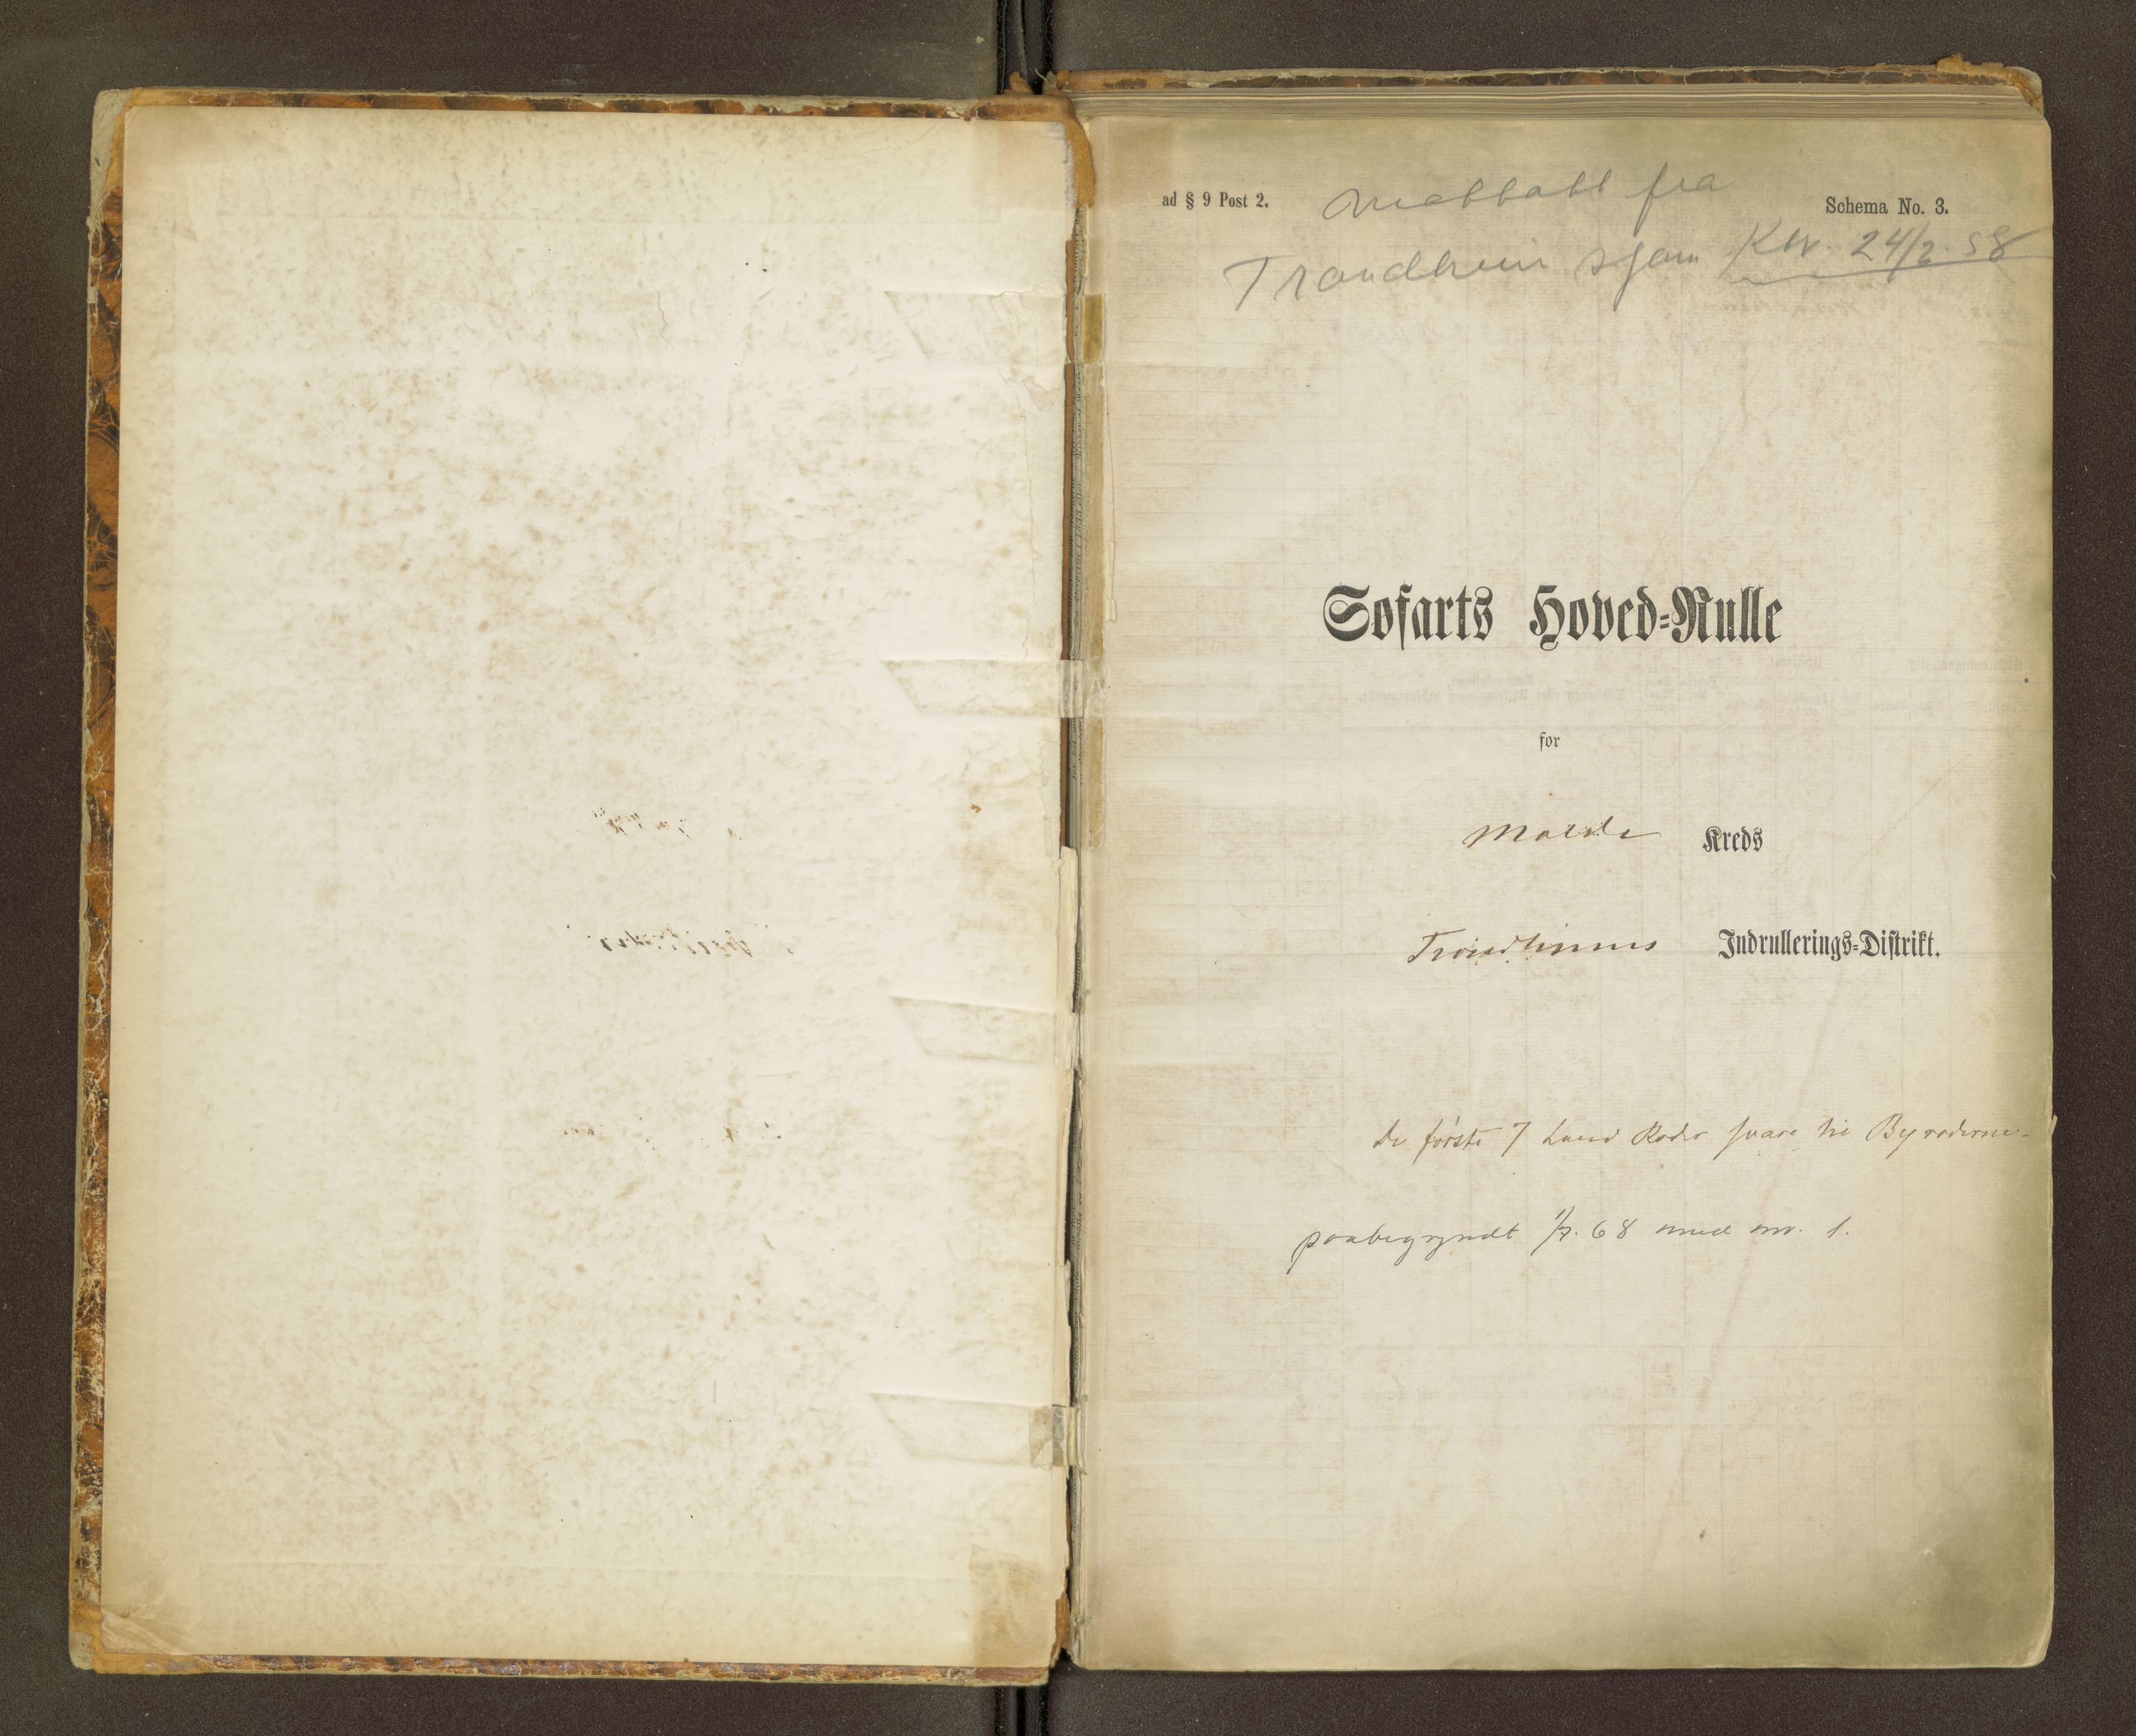 ad § 9 Post 2.
Schema No. 3.
Mottatt fra
Trondheim sjøm Ktr. 24/2. 58
Søfarts Hoved-Rulle
for
Molde Kreds
Trondhjems Indrullerings-Distrikt.
de første 7 Land Roder svare til Byroderne-
paabegyndt 1/7. 68 med no. 1.